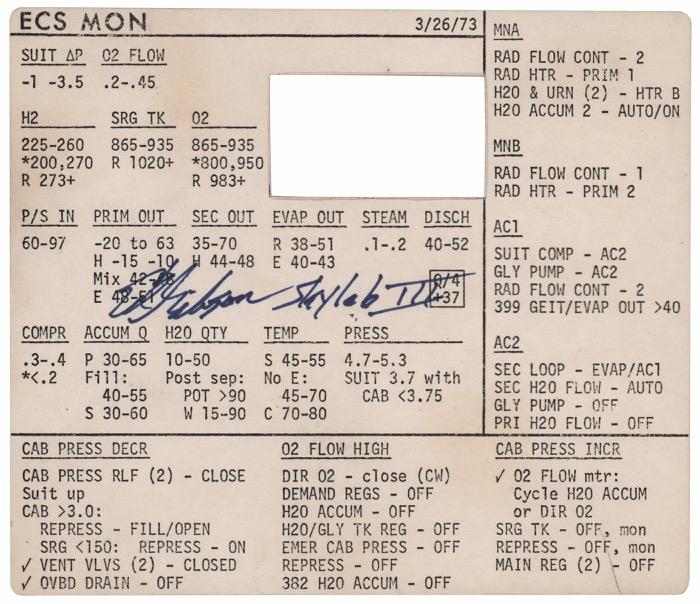 ECS MON 3/26/73
SUIT ΔP O2 FLOW
-1 -3.5 .2-.45
H2 SRG TK O2
225-260 865-935 865-935
*200,270 R 1020+ *800,950
R 273+ R 983+
P/S IN PRIM OUT SEC OUT EVAP OUT STEAM DISCH
60-97 -20 to 63 35-70 R 38-51 .1-.2 40-52
H -15 -10 H 44-48 E 40-43
Mix 42-48
E 48-51
Ed Gibson Skylab III
R/4
+37
COMPR ACCUM Q H2O QTY TEMP PRESS
.3-.4 P 30-65 10-50 S 45-55 4.7-5.3
*<.2 Fill: Post sep: No E: SUIT 3.7 with
40-55 POT >90 45-70 CAB <3.75
S 30-60 W 15-90 C 70-80
MNA
RAD FLOW CONT - 2
RAD HTR - PRIM 1
H2O & URN (2) - HTR B
H2O ACCUM 2 - AUTO/ON
MNB
RAD FLOW CONT - 1
RAD HTR - PRIM 2
AC1
SUIT COMP - AC2
GLY PUMP - AC2
RAD FLOW CONT - 2
399 GEIT/EVAP OUT >40
AC2
SEC LOOP - EVAP/AC1
SEC H2O FLOW - AUTO
GLY PUMP - OFF
PRI H2O FLOW - OFF
CAB PRESS DECR
CAB PRESS RLF (2) - CLOSE
Suit up
CAB >3.0:
REPRESS - FILL/OPEN
SRG <150: REPRESS - ON
✓ VENT VLVS (2) - CLOSED
✓ OVBD DRAIN - OFF
O2 FLOW HIGH
DIR O2 - close (CW)
DEMAND REGS - OFF
H2O ACCUM - OFF
H2O/GLY TK REG - OFF
EMER CAB PRESS - OFF
REPRESS - OFF
382 H2O ACCUM - OFF
CAB PRESS INCR
✓ O2 FLOW mtr:
Cycle H2O ACCUM
or DIR O2
SRG TK - OFF, mon
REPRESS - OFF, mon
MAIN REG (2) - OFF